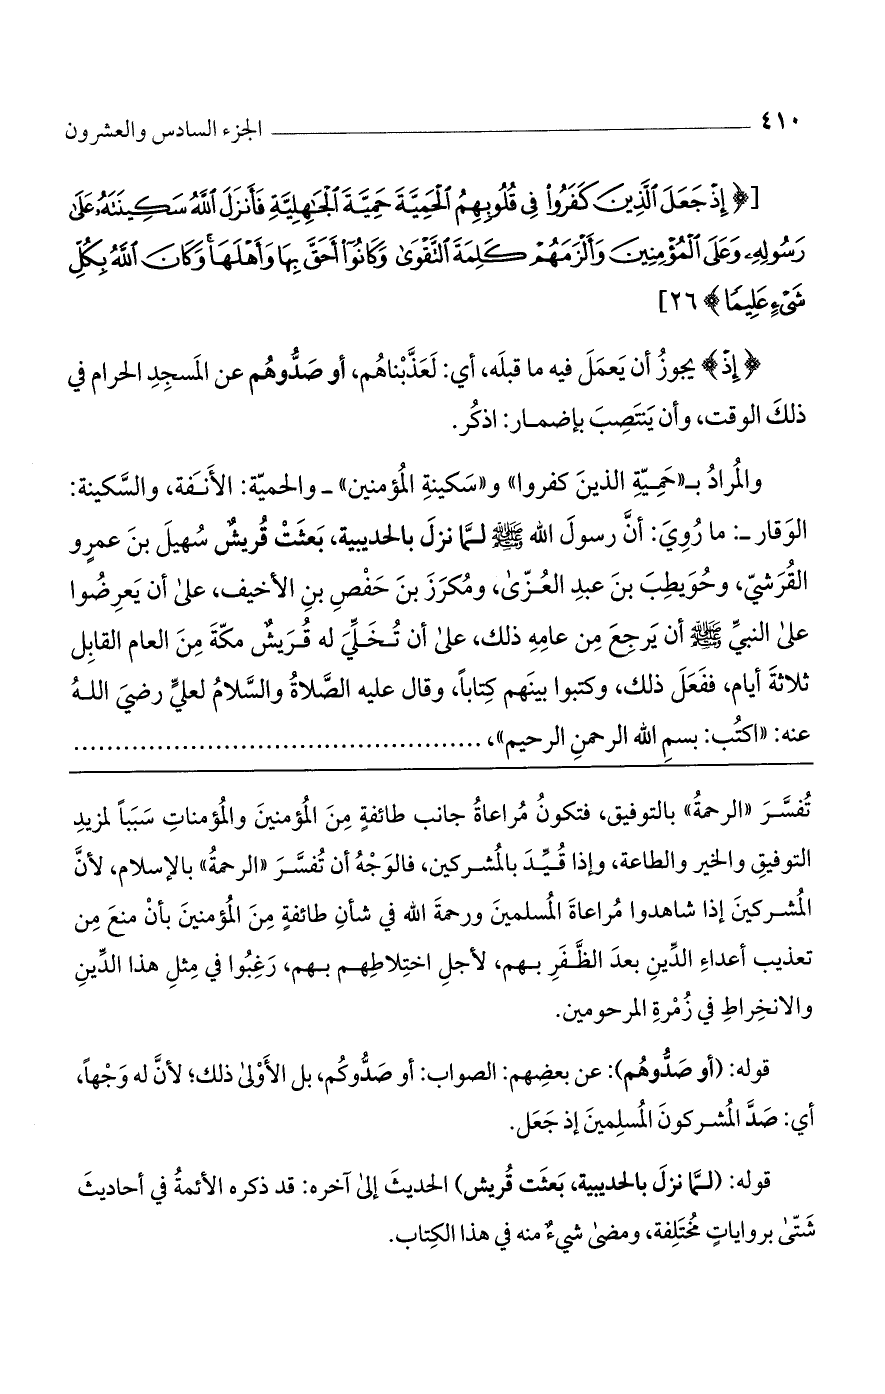 ٤١٠ ــــــــــ الجزء السادس والعشرون
[﴿إِذْ جَعَلَ ٱلَّذِينَ كَفَرُوا۟ فِى قُلُوبِهِمُ ٱلْحَمِيَّةَ حَمِيَّةَ ٱلْجَٰهِلِيَّةِ فَأَنزَلَ ٱللَّهُ سَكِينَتَهُۥ عَلَىٰ
رَسُولِهِۦ وَعَلَى ٱلْمُؤْمِنِينَ وَأَلْزَمَهُمْ كَلِمَةَ ٱلتَّقْوَىٰ وَكَانُوٓا۟ أَحَقَّ بِهَا وَأَهْلَهَا ۚ وَكَانَ ٱللَّهُ بِكُلِّ
شَىْءٍ عَلِيمًا﴾ ٢٦]
﴿إِذْ﴾ يجوزُ أن يَعمَلَ فيه ما قبلَه، أي: لَعَذَّبْناهُم، أو صَدُّوهُم عن المَسجِدِ الحرام في
ذلكَ الوقت، وأن يَنتَصِبَ بإضمار: اذكُر.
والمُرادُ بـ«حَمِيّةِ الذينَ كفروا» و«سَكينةِ المُؤمنين» ـ والحميّة: الأنَفة، والسَّكينة:
الوَقار ـ: ما رُوِيَ: أنَّ رسولَ الله ﷺ لـمَّا نزلَ بالحديبية، بَعثَتْ قُريشٌ سُهيلَ بنَ عمرٍو
القُرَشيّ، وحُوَيطِبَ بنَ عبدِ العُزّىٰ، ومُكرَزَ بنَ حَفْصِ بنِ الأخيف، علىٰ أن يَعرِضُوا
علىٰ النبيِّ ﷺ أن يَرجِعَ مِن عامِهِ ذلك، علىٰ أن تُخَلِّيَ له قُرَيشٌ مكّةَ مِنَ العام القابِل
ثلاثةَ أيام، ففَعَلَ ذلك، وكتبوا بينَهم كِتاباً، وقال عليه الصَّلاةُ والسَّلامُ لعليٍّ رضيَ اللهُ
عنه: «اكتُب: بسمِ الله الرحمنِ الرحيم»، ................................................
تُفسَّرَ «الرحمةُ» بالتوفيق، فتكونُ مُراعاةُ جانب طائفةٍ مِنَ المُؤمنينَ والمُؤمناتِ سَبَباً لمزيدِ
التوفيقِ والخيرِ والطاعة، وإذا قُيِّدَ بالمُشركين، فالوَجْهُ أن تُفسَّرَ «الرحمةُ» بالإسلام، لأنَّ
المُشركينَ إذا شاهدوا مُراعاةَ المُسلمينَ ورحمةَ الله في شأنِ طائفةٍ مِنَ المُؤمنينَ بأنْ منعَ مِن
تعذيب أعداءِ الدِّينِ بعدَ الظَّفَرِ بهم، لأجلِ اختِلاطِهم بهم، رَغِبُوا في مِثلِ هذا الدِّينِ
والانخِراطِ في زُمْرةِ المرحومين.
قوله: (أو صَدُّوهُم): عن بعضِهم: الصواب: أو صَدُّوكُم، بل الأَوْلىٰ ذلك؛ لأنَّ له وَجْهاً،
أي: صَدَّ المُشركونَ المُسلِمينَ إذ جَعَل.
قوله: (لـمَّا نزلَ بالحديبية، بَعثَت قُريش) الحديثَ إلىٰ آخره: قد ذكره الأئمةُ في أحاديثَ
شَتّىٰ برواياتٍ مُختَلِفة، ومضىٰ شيءٌ منه في هذا الكِتاب.